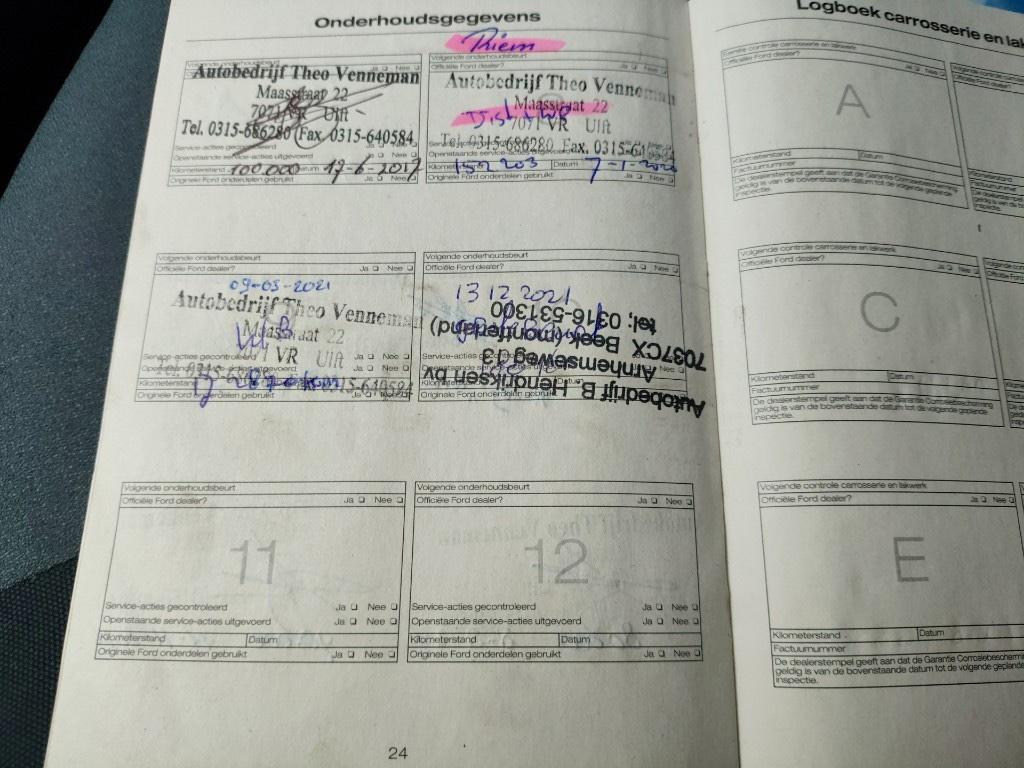 Onderhoudsgegevens
Riem
Officiële Ford dealer? Ja Nee
Autobedrijf Theo Venneman
Maasstraat 22
7071 VR Ulft
Tel. 0315-686280 Fax. 0315-640584
Openstaande service-acties uitgevoerd Ja Nee
Kilometerstand 100.000 Datum 17-6-2017
Originele Ford onderdelen gebruikt Ja Nee
Volgende onderhoudsbeurt
Officiële Ford dealer? Ja Nee
Autobedrijf Theo Venneman
Maasstraat 22
7071 VR Ulft
Tel. 0315-686280 Fax. 0315-64
Openstaande service-acties uitgevoerd Ja Nee
Kilometerstand Datum 7-1-2020
Originele Ford onderdelen gebruikt Ja Nee
Volgende onderhoudsbeurt
Officiële Ford dealer? Ja Nee
09-03-2021
Autobedrijf Theo Venneman
Maasstraat 22
7071 VR Ulft
Service-acties gecontroleerd Ja Nee
Kilometerstand
0315-640584
Originele Ford onderdelen gebruikt Ja Nee
Volgende onderhoudsbeurt
Officiële Ford dealer? Ja Nee
13 12 2021
Autobedrijf B. Hendriksen bv
Arnhemseweg 13
7037CX Beek (montferland)
tel: 0316-531300
Originele Ford onderdelen gebruikt Ja Nee
Volgende onderhoudsbeurt
Officiële Ford dealer? Ja Nee
11
Service-acties gecontroleerd Ja Nee
Openstaande service-acties uitgevoerd Ja Nee
Kilometerstand Datum
Originele Ford onderdelen gebruikt Ja Nee
Volgende onderhoudsbeurt
Officiële Ford dealer? Ja Nee
12
Service-acties gecontroleerd Ja Nee
Openstaande service-acties uitgevoerd Ja Nee
Kilometerstand Datum
Originele Ford onderdelen gebruikt Ja Nee
24
Logboek carrosserie en lak
Eerste controle carrosserie en lakwerk
Officiële Ford dealer? Ja Nee
A
Kilometerstand Datum
Factuurnummer
De dealerstempel geeft aan dat de Garantie Corrosiebescherming
geldig is van de bovenstaande datum tot de volgende geplande
inspectie.
Volgende controle carrosserie en lakwerk
Officiële Ford dealer? Ja Nee
C
Kilometerstand Datum
Factuurnummer
De dealerstempel geeft aan dat de Garantie Corrosiebescherming
geldig is van de bovenstaande datum tot de volgende geplande
inspectie.
Volgende controle carrosserie en lakwerk
Officiële Ford dealer? Ja Nee
E
Kilometerstand Datum
Factuurnummer
De dealerstempel geeft aan dat de Garantie Corrosiebeschermin
geldig is van de bovenstaande datum tot de volgende geplande
inspectie.